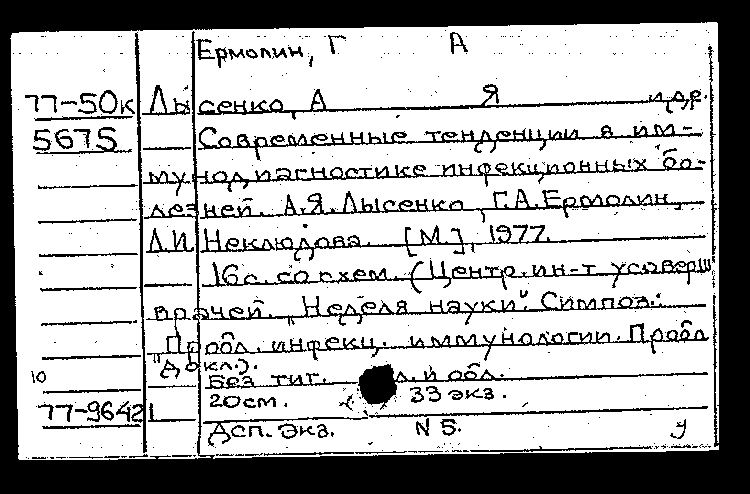 Ермолин, Г А
77-50к Лысенко, А Я и др.
5675 Современные тенденции в им-
мунодиагностике инфекционных бо-
лезней. А.Я. Лысенко, Г.А. Ермолин,
Л.И. Неклюдова. [М.], 1977.
16с. со схем. (Центр. ин-т усоверш
врачей. „Неделя науки". Симпоз.:
"Пробл. инфекц. иммунологии. Пробл
докл.).
10 Без тит. л. и обл.
77-96421 20см. 33 экз.
Дсп. Экз. N 5. У